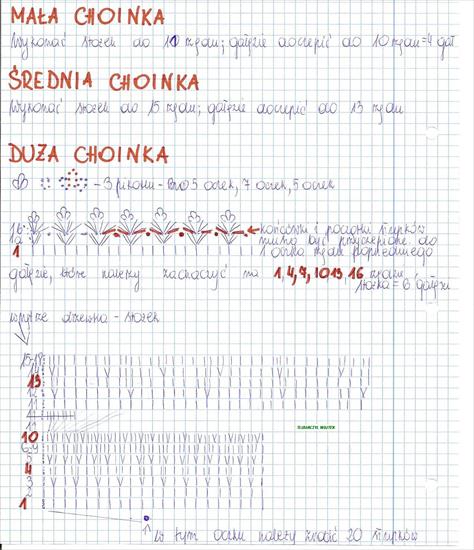 MAŁA CHOINKA
Wykonać stożek do 10 rzędu; gałęzie doczepić do 10 rzędu=4 gał
ŚREDNIA CHOINKA
Wykonać stożek do 15 rzędu; gałęzie doczepić do 13 rzędu
DUŻA CHOINKA
- 3 pikoni - 5 oczek, 7 oczek, 5 oczek
16 końcówki i początki słupków
1a muszą być przyczepione do
1 1 oczka rzędu poprzedniego
gałęzie, które należy zahaczyć na 1, 4, 7, 10 13, 16 rzędzie
stożka = 6 gałęzi
wnętrze drzewka - stożek
15-18
14
13
12
11
SLUBARCZYK WOJTEK
10
6-9
5
4
3
2
1
w tym oczku należy zrobić 20 słupków